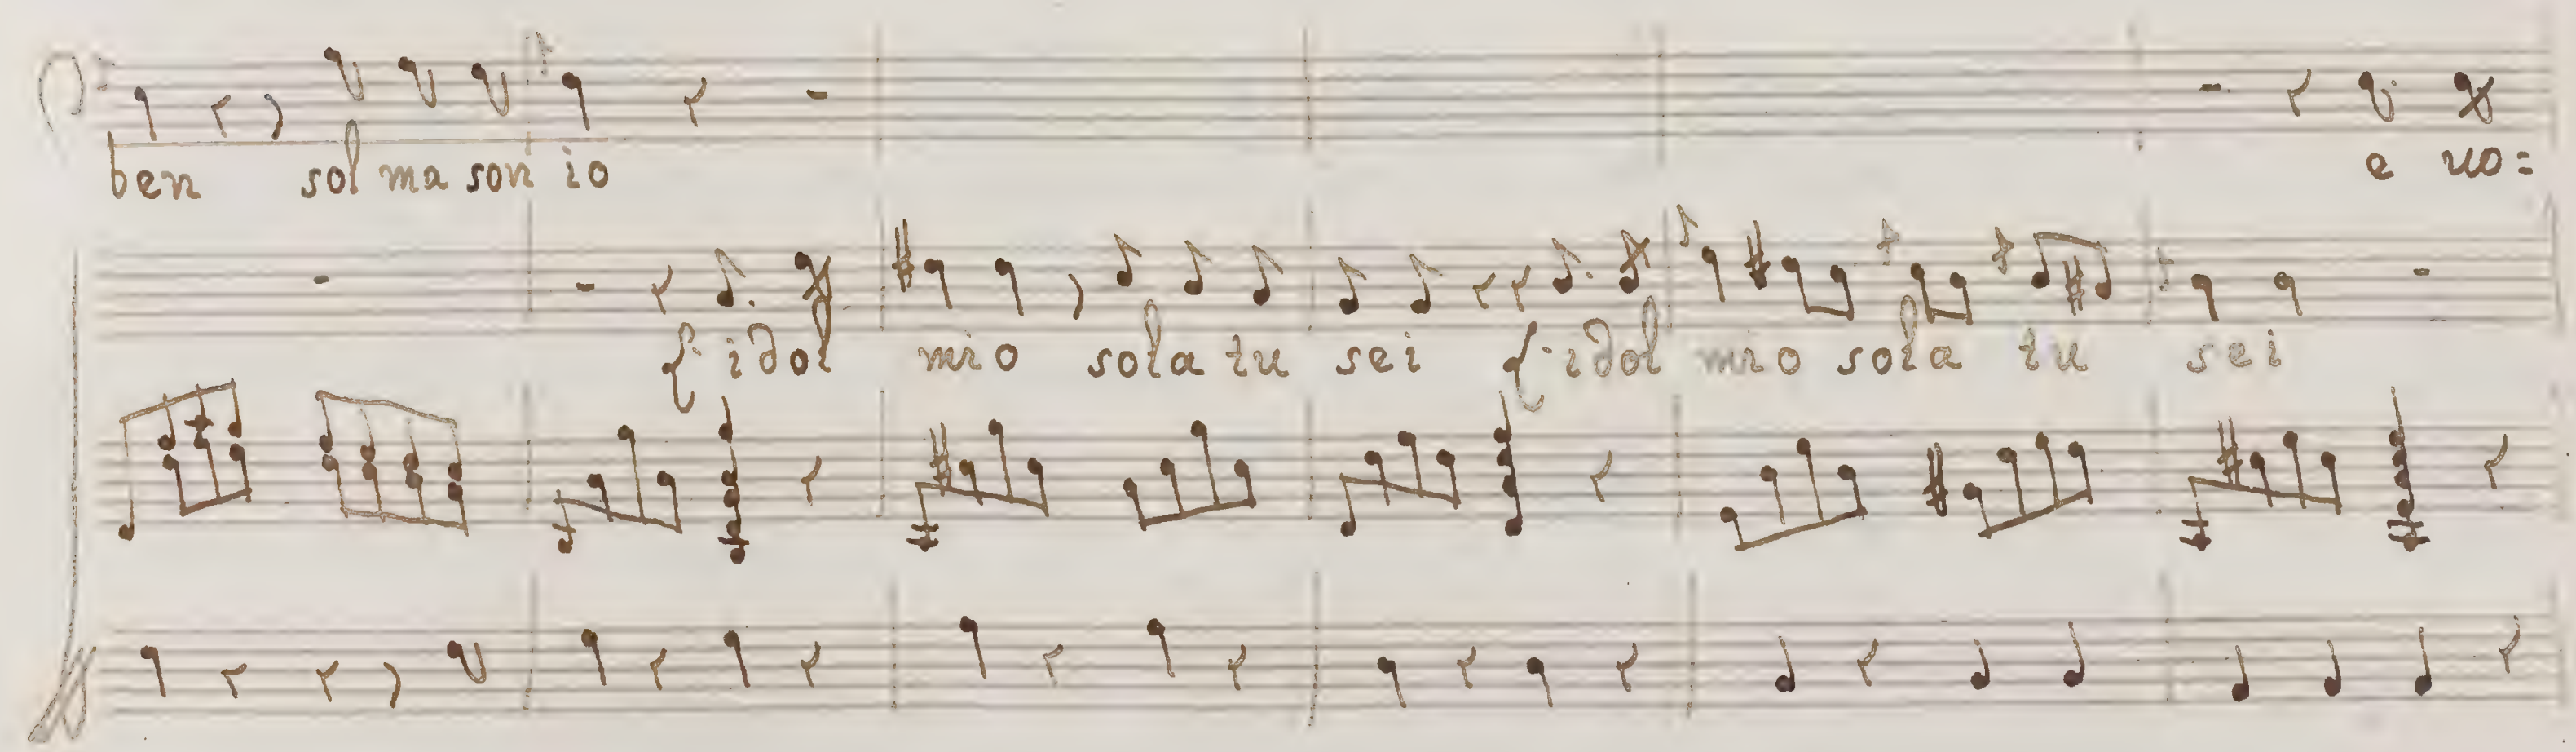 ben sol ma son io e uo=
L'idol mio sola tu sei L'idol mio sola tu sei